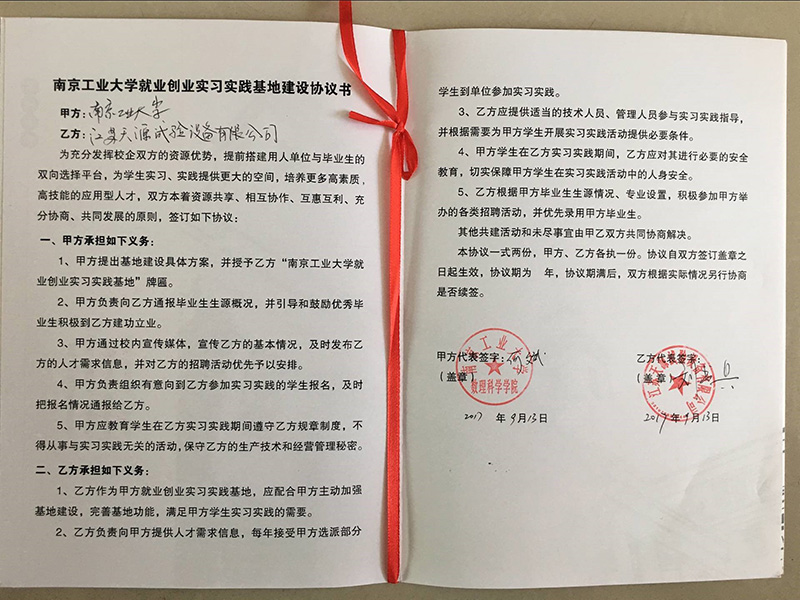 南京工业大学就业创业实习实践基地建设协议书
甲方：南京工业大学
乙方：江苏天源试验设备有限公司
为充分发挥校企双方的资源优势，提前搭建用人单位与毕业生的
双向选择平台，为学生实习、实践提供更大的空间，培养更多高素质、
高技能的应用型人才，双方本着资源共享、相互协作、互惠互利、充
分协商、共同发展的原则，签订如下协议：
一、甲方承担如下义务：
1、甲方提出基地建设具体方案，并授予乙方“南京工业大学就
业创业实习实践基地”牌匾。
2、甲方负责向乙方通报毕业生生源概况，并引导和鼓励优秀毕
业生积极到乙方建功立业。
3、甲方通过校内宣传媒体，宣传乙方的基本情况，及时发布乙
方的人才需求信息，并对乙方的招聘活动优先予以安排。
4、甲方负责组织有意向到乙方参加实习实践的学生报名，及时
把报名情况通报给乙方。
5、甲方应教育学生在乙方实习实践期间遵守乙方规章制度，不
得从事与实习实践无关的活动，保守乙方的生产技术和经营管理秘密。
二、乙方承担如下义务：
1、乙方作为甲方就业创业实习实践基地，应配合甲方主动加强
基地建设，完善基地功能，满足甲方学生实习实践的需要。
2、乙方负责向甲方提供人才需求信息，每年接受甲方选派部分
学生到单位参加实习实践。
3、乙方应提供适当的技术人员、管理人员参与实习实践指导，
并根据需要为甲方学生开展实习实践活动提供必要条件。
4、甲方学生在乙方实习实践期间，乙方应对其进行必要的安全
教育，切实保障甲方学生在实习实践活动中的人身安全。
5、乙方根据甲方毕业生生源情况、专业设置，积极参加甲方举
办的各类招聘活动，并优先录用甲方毕业生。
其他共建活动和未尽事宜由甲乙双方共同协商解决。
本协议一式两份，甲方、乙方各执一份。协议自双方签订盖章之
日起生效，协议期为 年，协议期满后，双方根据实际情况另行协商
是否续签。
甲方代表签字：
（盖章）
南京工业大学
数理科学学院
2017 年 9月13日
乙方代表签字：
（盖章）
江苏天源试验设备有限公司
2017 年 9月13日